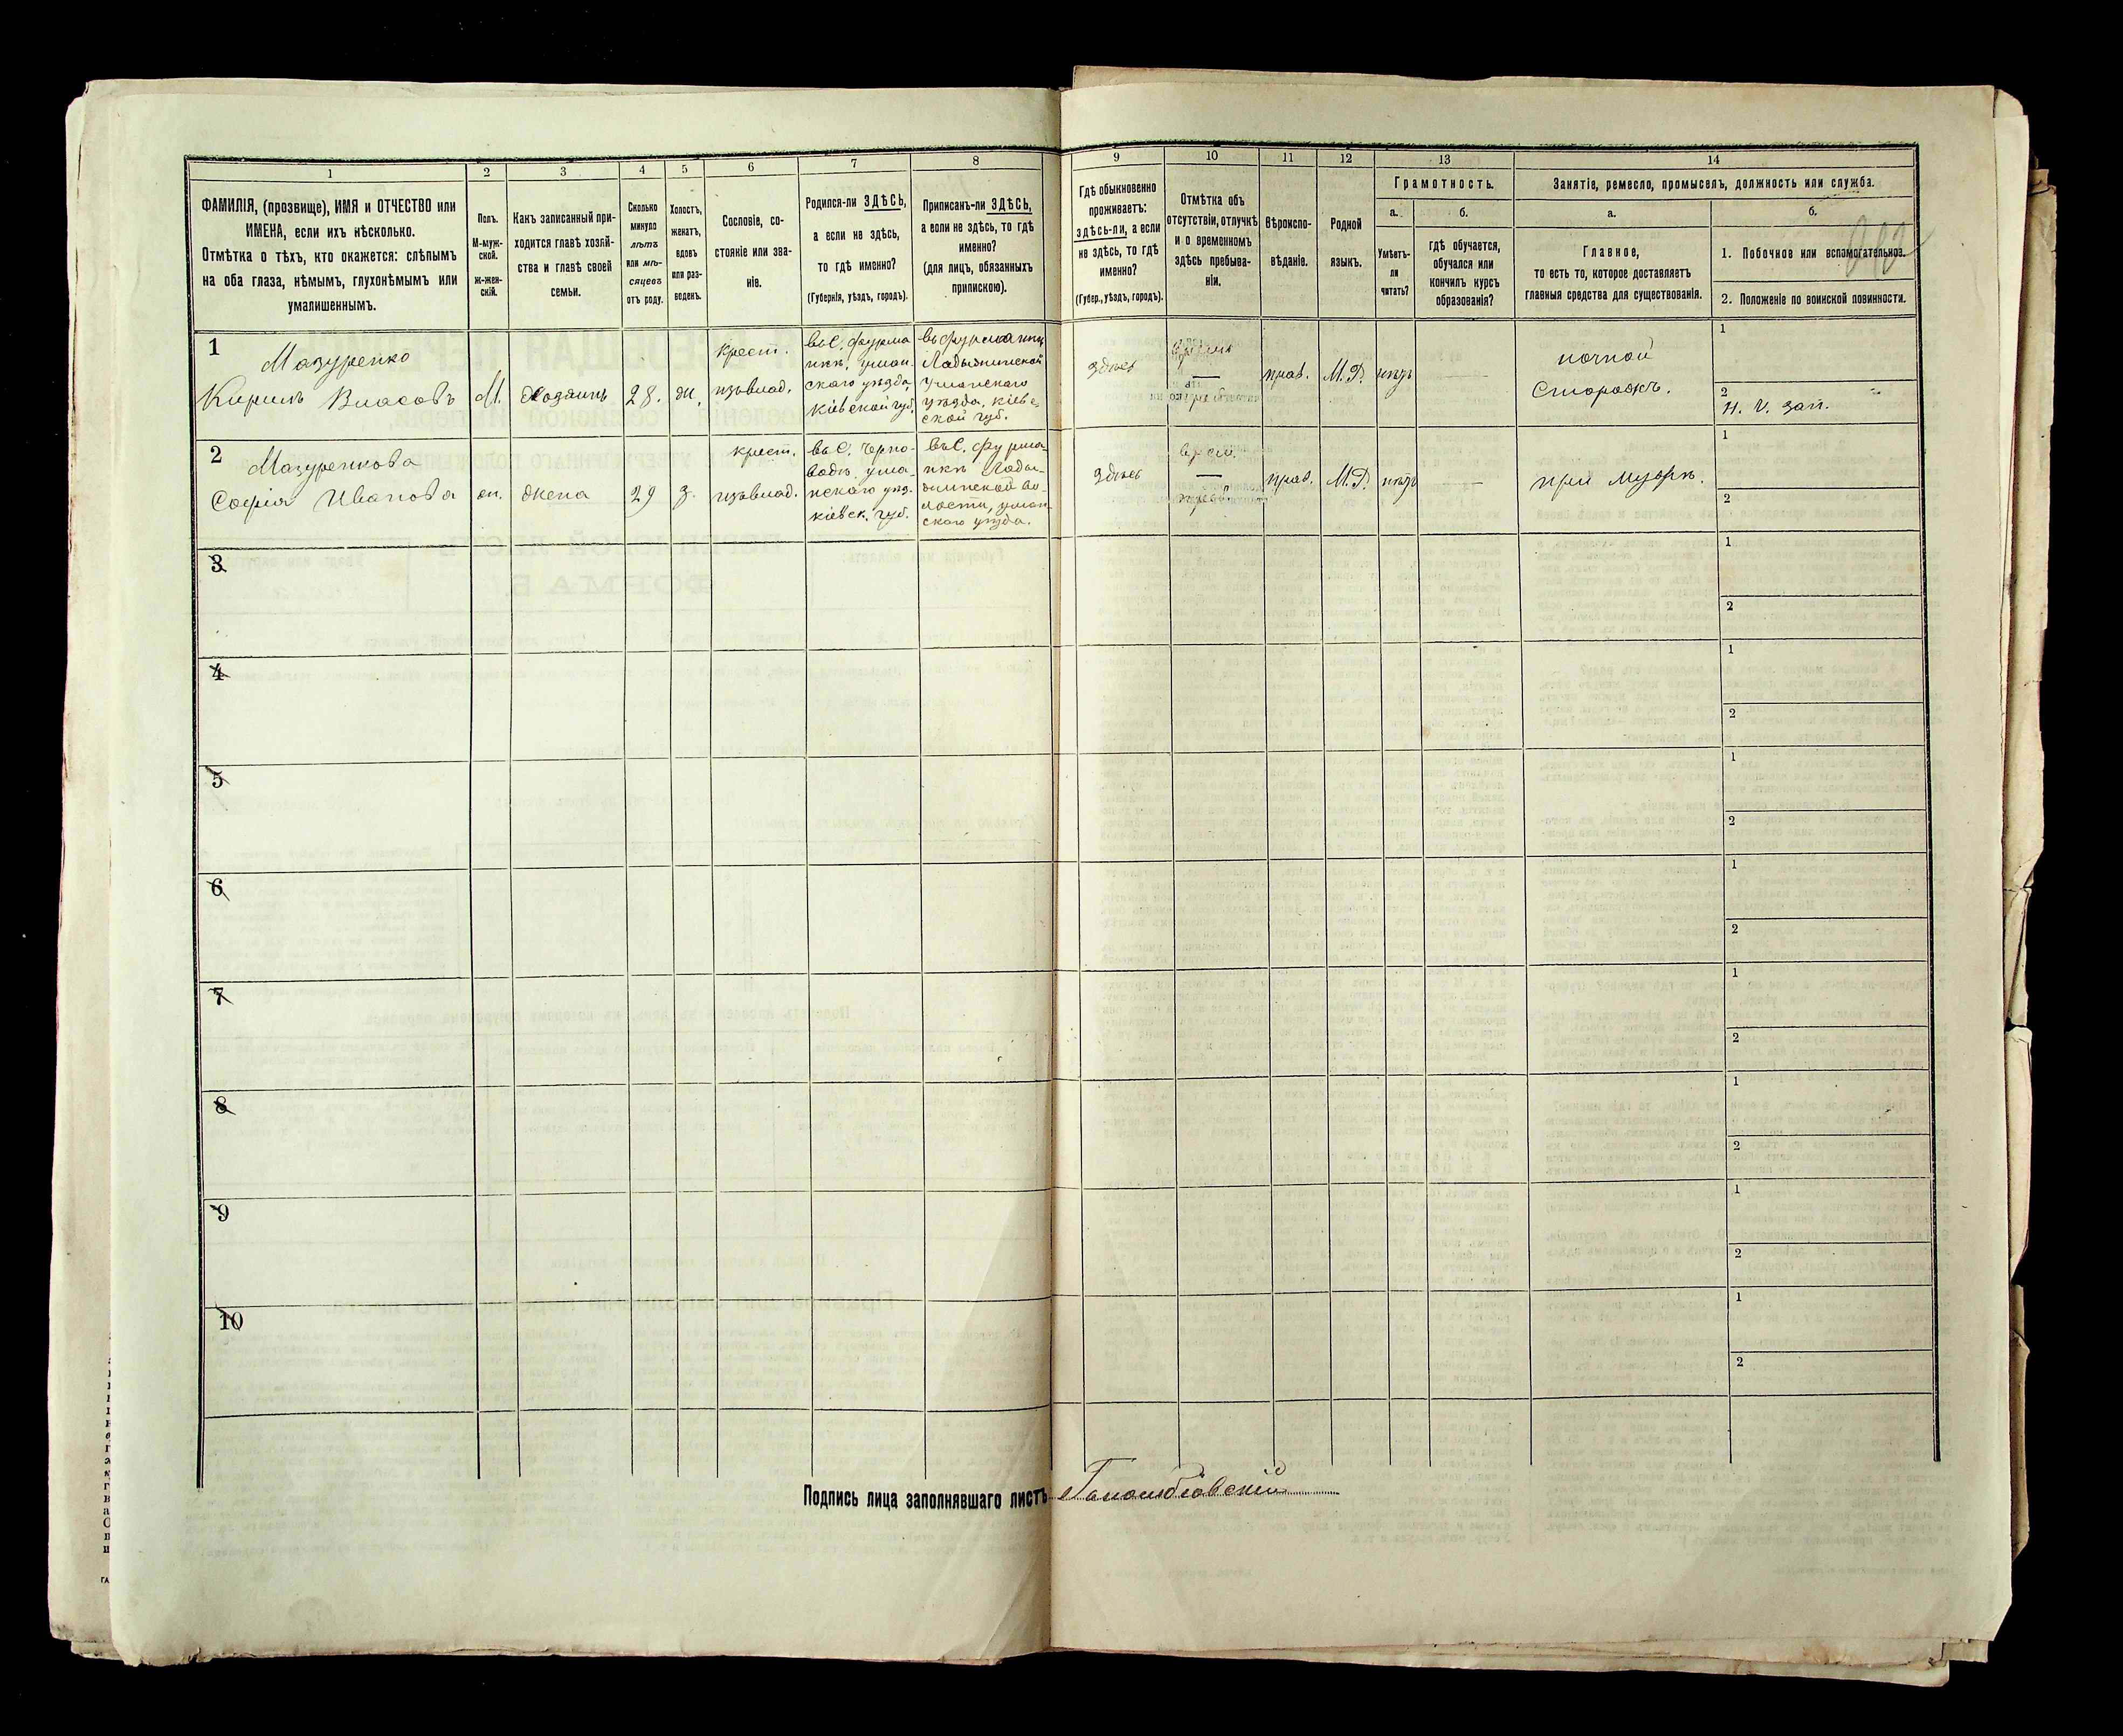 1
2
3
4
5
6
7
8
9
10
11
12
13
14
ФАМИЛІЯ, (прозвище), ИМЯ и ОТЧЕСТВО или
ИМЕНА, если ихъ нѣсколько.
Отмѣтка о тѣхъ, кто окажется: слѣпымъ
на оба глаза, нѣмымъ, глухонѣмымъ или
умалишеннымъ.
Полъ.
М-муж-
ской.
Ж-жен-
скій.
Какъ записанный при-
ходится главѣ хозяй-
ства и главѣ своей
семьи.
Сколько
минуло
лѣтъ
или мѣ-
сяцевъ
отъ роду.
Холостъ,
женатъ,
вдовъ
или раз-
веденъ.
Сословіе, со-
стояніе или зва-
ніе.
Родился-ли ЗДѢСЬ,
а если не здѣсь,
то гдѣ именно?
(Губернія, уѣздъ, городъ).
Приписанъ-ли ЗДѢСЬ,
а если не здѣсь, то гдѣ
именно?
(для лицъ, обязанныхъ
припискою).
Гдѣ обыкновенно
проживаетъ:
здѣсь-ли, а если
не здѣсь, то гдѣ
именно?
(Губер., уѣздъ, городъ).
Отмѣтка объ
отсутствіи, отлучкѣ
и о временномъ
здѣсь пребыва-
ніи.
Вѣроиспо-
вѣданіе.
Родной
языкъ.
Грамотность.
а.
б.
Умѣетъ-
ли
читать?
гдѣ обучается,
обучался или
кончилъ курсъ
образованія?
Занятіе, ремесло, промыселъ, должность или служба.
а.
б.
Главное,
то есть то, которое доставляетъ
главныя средства для существованія.
1. Побочное или вспомогательное.
2. Положеніе по воинской повинности.
1
Мазуренко
Кирилъ Власовъ
М.
Хозяинъ
28.
ж.
крест.
изъ влад.
въ С. Фурма
нкѣ, уман
скаго уѣзда,
Кіевской губ.
въ Фурманкѣ
Ладыжинской
Уманскаго
уѣзда, Кіев-
ской губ.
здѣсь
прав.
М. Р.
нѣтъ
ночной
Сторожъ.
1
2
Н. Ч. зап.
2
Мазуренкова
Софія Иванова
ж.
жена
29
з.
крест.
изъ влад.
въ С. Черно-
водкѣ ума-
нскаго уѣз.
кіевск. губ.
въ С. Фурма-
нкѣ Лады-
жинской во-
лости, уман-
скаго уѣзда.
здѣсь
врем.
прав.
М. Р.
нѣтъ
при мужѣ.
1
2
3
1
2
4
1
2
5
1
2
6
1
2
7
1
2
8
1
2
9
1
2
10
1
2
Подпись лица заполнявшаго листъ